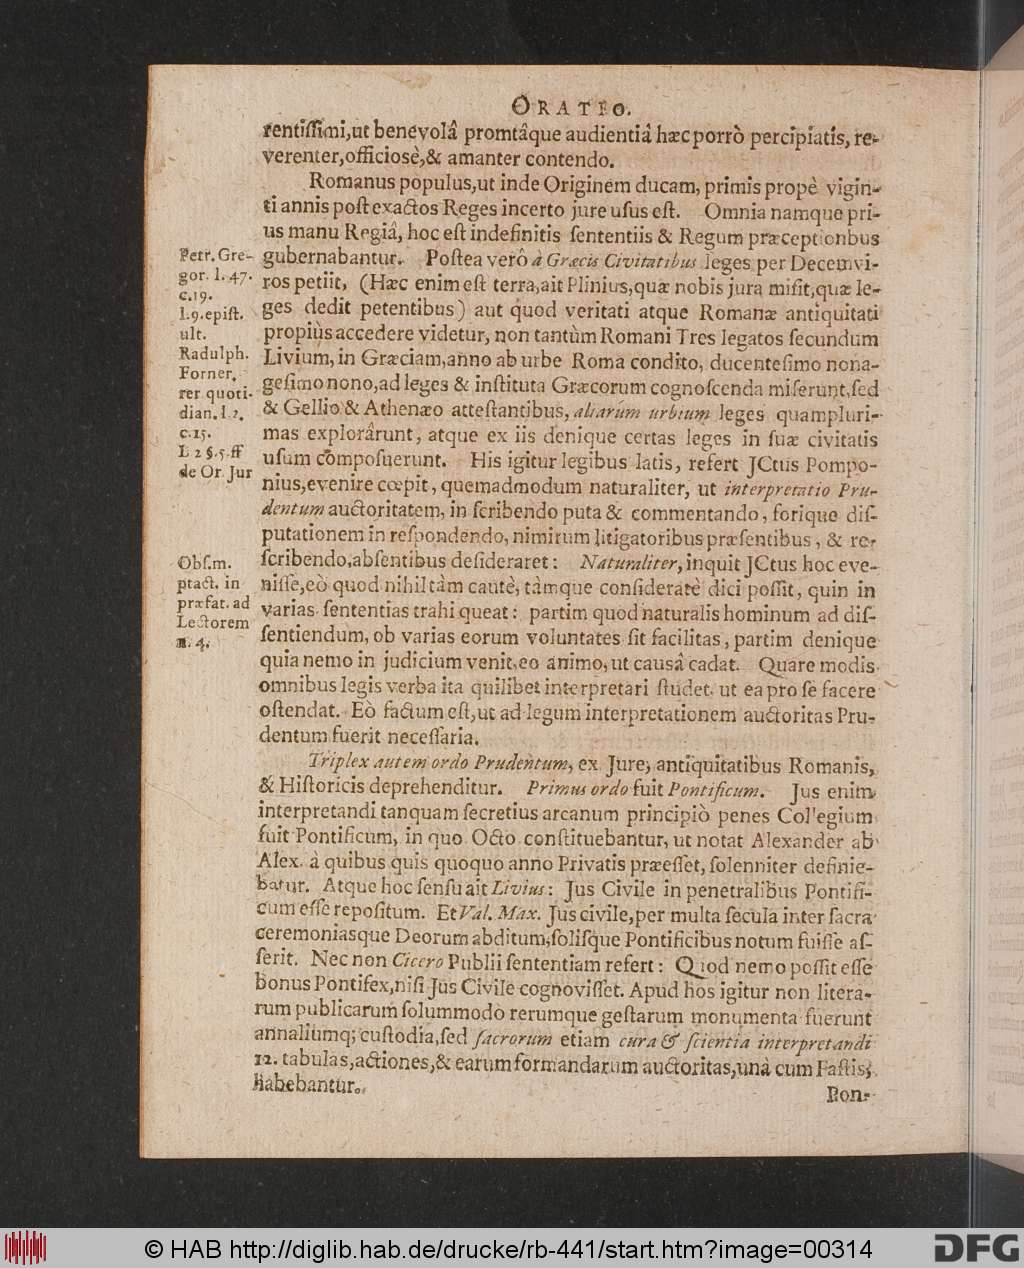 ORATIO.
rentiſſimi,ut benevolâ promtâque audientiâ hæc porrò percipiatis, re-
verenter,officiosè,& amanter contendo.
Romanus populus,ut inde Originem ducam, primis propè vigin-
ti annis poſt exactos Reges incerto jure uſus eſt. Omnia namque pri-
us manu Regiâ, hoc eſt indefinitis ſententiis & Regum præceptionbus
gubernabantur. Poſtea verò à Græcis Civitatibus leges per Decemvi-
ros petiit, (Hæc enim eſt terra,ait Plinius,quæ nobis jura miſit,quæ le-
ges dedit petentibus) aut quod veritati atque Romanæ antiquitati
propiùs accedere videtur, non tantùm Romani Tres legatos ſecundum
Livium, in Græciam,anno ab urbe Roma condito, ducenteſimo nona-
geſimo nono,ad leges & inſtituta Græcorum cognoſcenda miſerunt,ſed
& Gellio & Athenæo atteſtantibus, aliarúm urbium leges quampluri-
mas explorârunt, atque ex iis denique certas leges in ſuæ civitatis
uſum compoſuerunt. His igitur legibus latis, refert JCtus Pompo-
nius,evenire cœpit, quemadmodum naturaliter, ut interpretatio Pru-
dentum auctoritatem, in ſcribendo puta & commentando, forique diſ-
putationem in reſpondendo, nimirum litigatoribus præſentibus, & re-
ſcribendo,abſentibus deſideraret: Naturaliter, inquit JCtus hoc eve-
niſſe,eò quod nihil tàm cautè, tàmque conſideratè dici poſſit, quin in
varias ſententias trahi queat: partim quod naturalis hominum ad diſ-
ſentiendum, ob varias eorum voluntates ſit facilitas, partim denique
quia nemo in judicium venit,eo animo, ut causâ cadat. Quare modis
omnibus legis verba ita quilibet interpretari ſtudet, ut ea pro ſe facere
oſtendat. Eò factum eſt,ut ad legum interpretationem auctoritas Pru-
dentum fuerit neceſſaria.
Triplex autem ordo Prudentum, ex Jure, antiquitatibus Romanis,
& Hiſtoricis deprehenditur. Primus ordo fuit Pontificum. Jus enim
interpretandi tanquam ſecretius arcanum principiò penes Collegium
fuit Pontificum, in quo Octo conſtituebantur, ut notat Alexander ab
Alex. à quibus quis quoquo anno Privatis præeſſet, ſolenniter definie-
batur. Atque hoc ſenſu ait Livius: Jus Civile in penetralibus Pontifi-
cum eſſe repoſitum. Et Val. Max. Jus civile,per multa ſecula inter ſacra
ceremoniasque Deorum abditum,ſoliſque Pontificibus notum fuiſſe aſ-
ſerit. Nec non Cicero Publii ſententiam refert: Quod nemo poſſit eſſe
bonus Pontifex,niſi Jus Civile cognoviſſet. Apud hos igitur non litera-
rum publicarum ſolummodo rerumque geſtarum monumenta fuerunt
annaliumq; cuſtodia,ſed ſacrorum etiam cura & ſcientia interpretandi
12. tabulas,actiones,& earum formandarum auctoritas,unà cum Faſtis,
habebantur.
Pon-
Petr. Gre-
gor. l. 47.
c.19.
l.9.epiſt.
ult.
Radulph.
Forner.
rer quoti-
dian. l 2.
c.15.
L 2 §.5.ff
de Or. Jur
Obſ.m.
ptact. in
præfat. ad
Lectorem
n. 4.
© HAB http://diglib.hab.de/drucke/rb-441/start.htm?image=00314
DFG